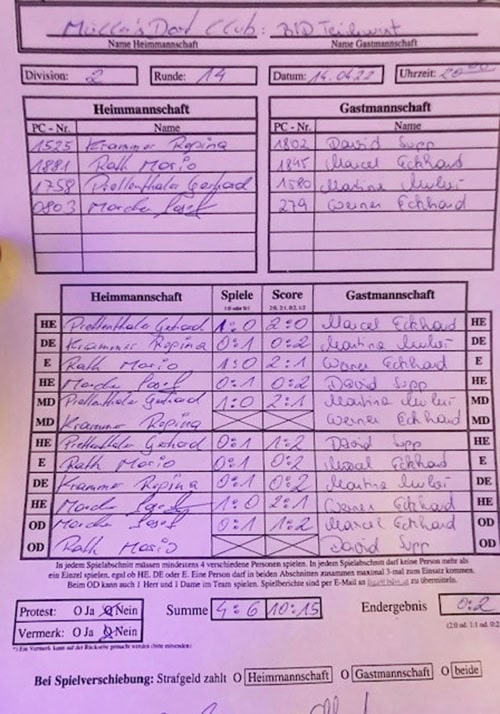 Müller's Dart Club: BID
Name Heimmannschaft Name Gastmannschaft
Division: 2 Runde: 14 Datum: 14.04.22 Uhrzeit: 20:00
Heimmannschaft Gastmannschaft
PC - Nr. Name PC - Nr. Name
1525 Krammer Regina 1802 David Supp
1881 Rath Mario 1845 Marcel Eckhard
1758 Prettenthaler Gerhard 1580 Martina
0803 Josef 279 Werner Eckhard
Heimmannschaft Spiele Score Gastmannschaft
1:0 oder 0:1 2:0, 2:1, 0:2, 1:2
HE Prettenthaler Gerhard 1:0 2:0 Marcel Eckhard HE
DE Krammer Regina 0:1 0:2 Martina DE
E Rath Mario 1:0 2:1 Werner Eckhard E
HE Josef 0:1 0:2 David Supp HE
MD Prettenthaler Gerhard 1:0 2:1 Martina MD
MD Krammer Regina Werner Eckhard MD
HE Prettenthaler Gerhard 0:1 1:2 David Supp HE
E Rath Mario 0:1 0:2 Marcel Eckhard E
DE Krammer Regina 0:1 0:2 Martina DE
HE Josef 1:0 2:1 Werner Eckhard HE
OD Josef 0:1 1:2 Marcel Eckhard OD
OD Rath Mario David Supp OD
In jedem Spielabschnitt müssen mindestens 4 verschiedene Personen spielen. In jedem Spielabschnitt darf keine Person mehr als
ein Einzel spielen, egal ob HE, DE oder E. Eine Person darf in beiden Abschnitten zusammen maximal 3-mal zum Einsatz kommen.
Beim OD kann auch 1 Herr und 1 Dame im Team spielen. Spielberichte sind per E-Mail an zu übermitteln.
Protest: O Ja O Nein Summe 4:6 10:15 Endergebnis 0:2
Vermerk: O Ja O Nein
*) Ein Vermerk kann auf der Rückseite gemacht werden (bitte ankreuzen)
Bei Spielverschiebung: Strafgeld zahlt O Heimmannschaft O Gastmannschaft O beide